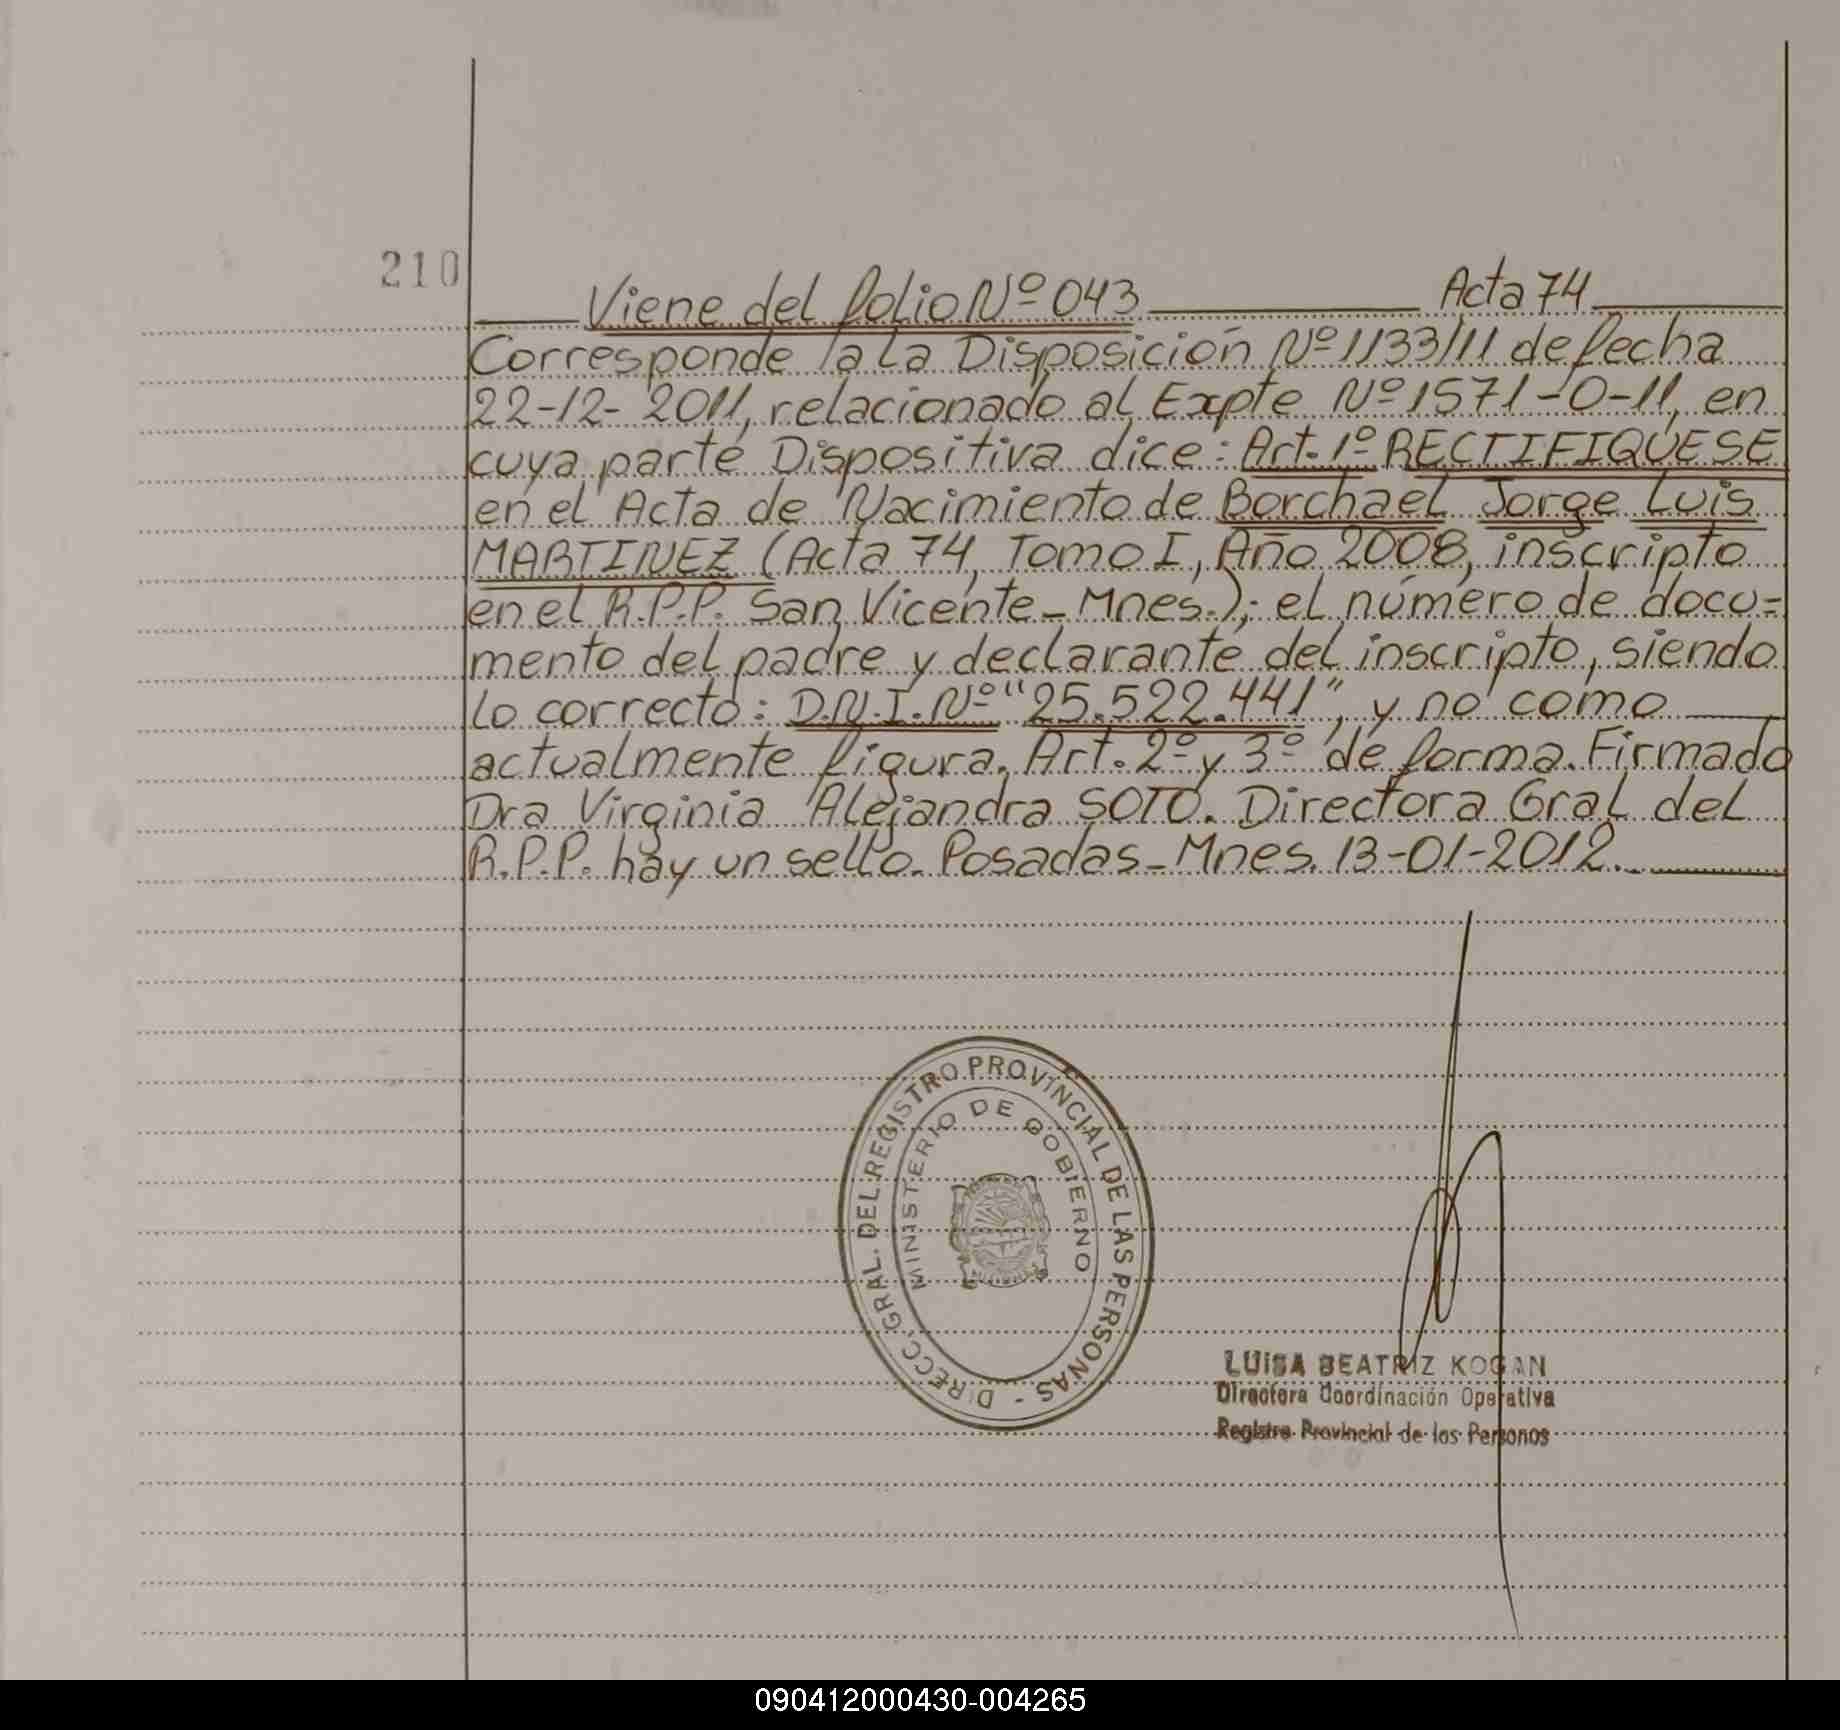 210
Viene del folio Nº 043 Acta 74
Corresponde a la Disposición Nº 1133/11 de fecha
22-12-2011, relacionado al Expte Nº 1571-0-11, en
cuya parte Dispositiva dice: Art. 1º RECTIFIQUESE
en el Acta de Nacimiento de Borchael Jorge Luis
MARTINEZ (Acta 74, Tomo I, Año 2008, inscripto
en el R.P.P. San Vicente - Mnes.); el número de docu=
mento del padre y declarante del inscripto, siendo
lo correcto: D.N.I. Nº "25.522.441", y no como
actualmente figura. Art. 2º y 3º de forma. Firmado
Dra Virginia Alejandra SOTO. Directora Gral del
R.P.P. hay un sello. Posadas - Mnes. 13-01-2012.
DIRECC. GRAL. DEL REGISTRO PROVINCIAL DE LAS PERSONAS -
MINISTERIO DE GOBIERNO
LUISA BEATRIZ KOGAN
Directora Coordinación Operativa
Registro Provincial de las Personas
090412000430-004265